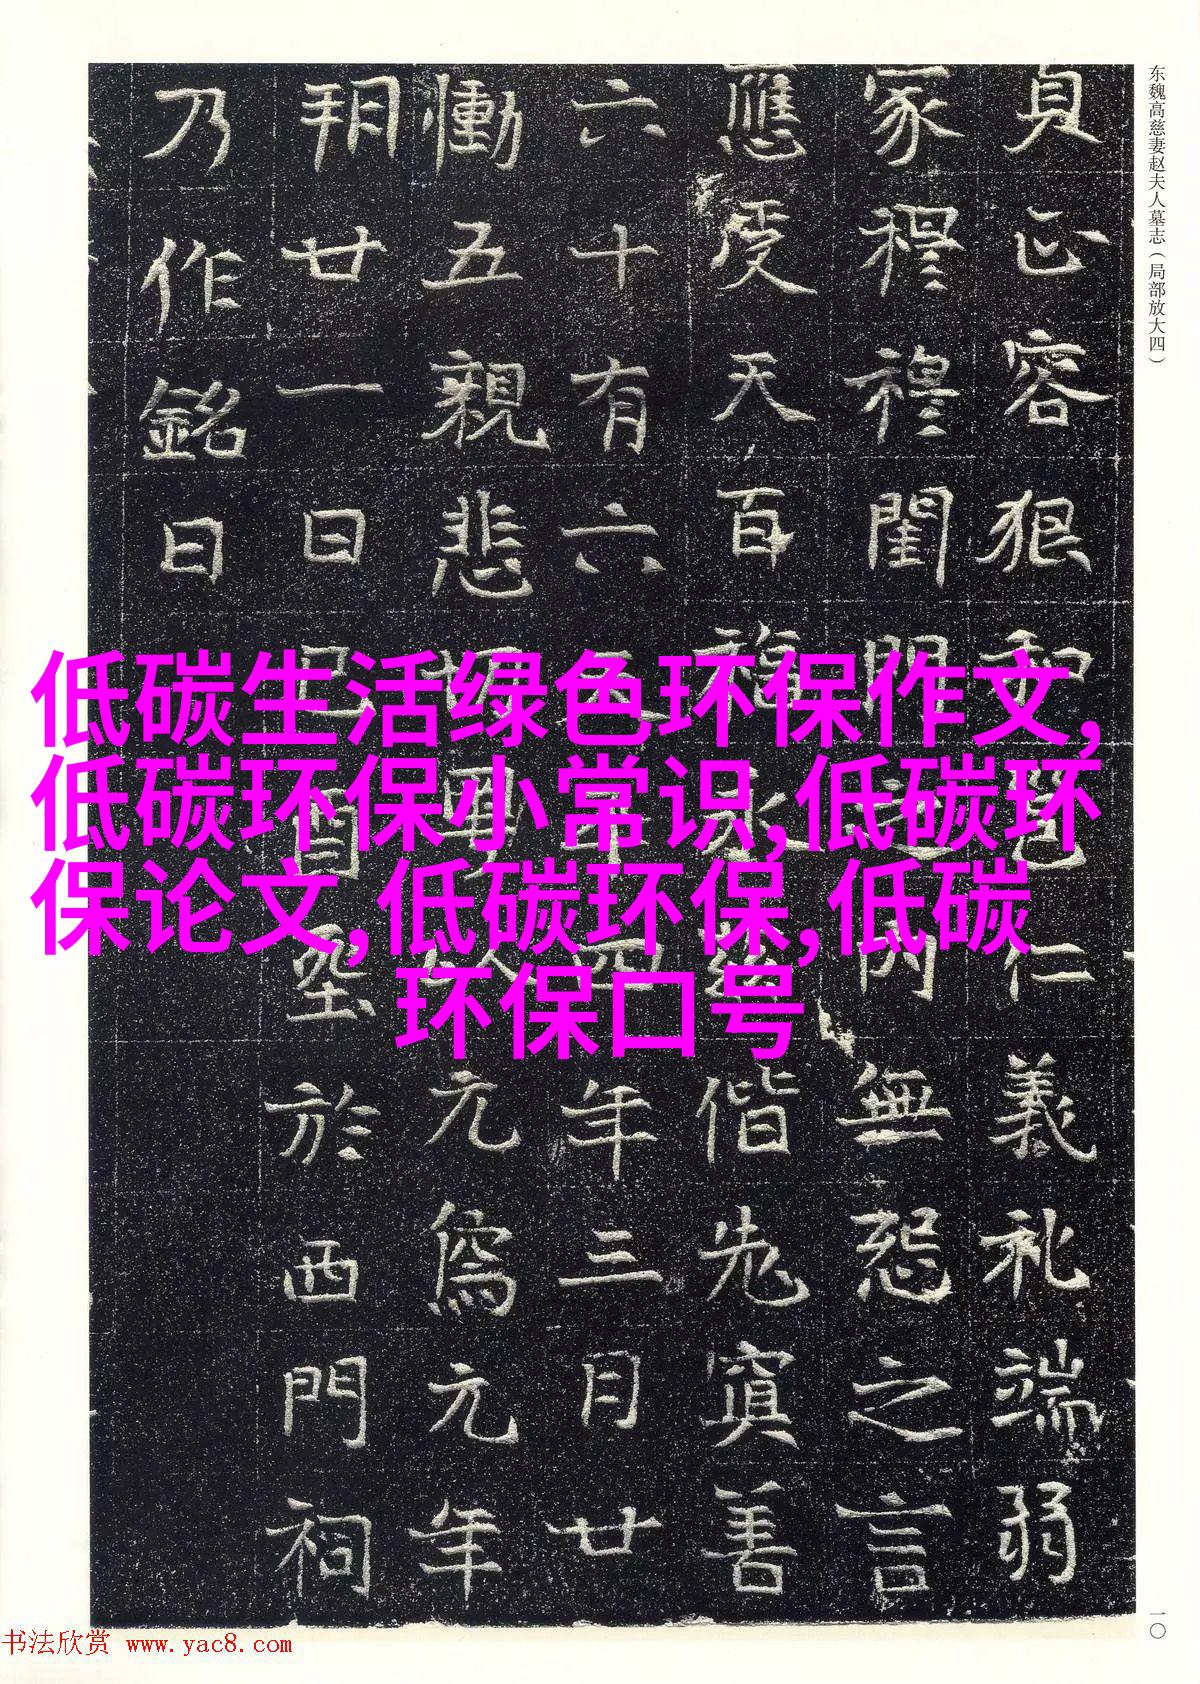 东魏高慈妻赵夫人墓志（局部放大四）
貞正容狠和邕仁義礼端弱
家穆穆閨門之内無怨之言
應受天百福永慈偕老寘善
六十有六
年三月廿
慟五親悲切
元為元年
朔廿一日己酉
於西門祠
乃作銘曰
低碳生活绿色环保作文,
低碳环保小常识,低碳环
保论文,低碳环保,低碳
环保口号
一〇
书法欣赏 www.yac8.com